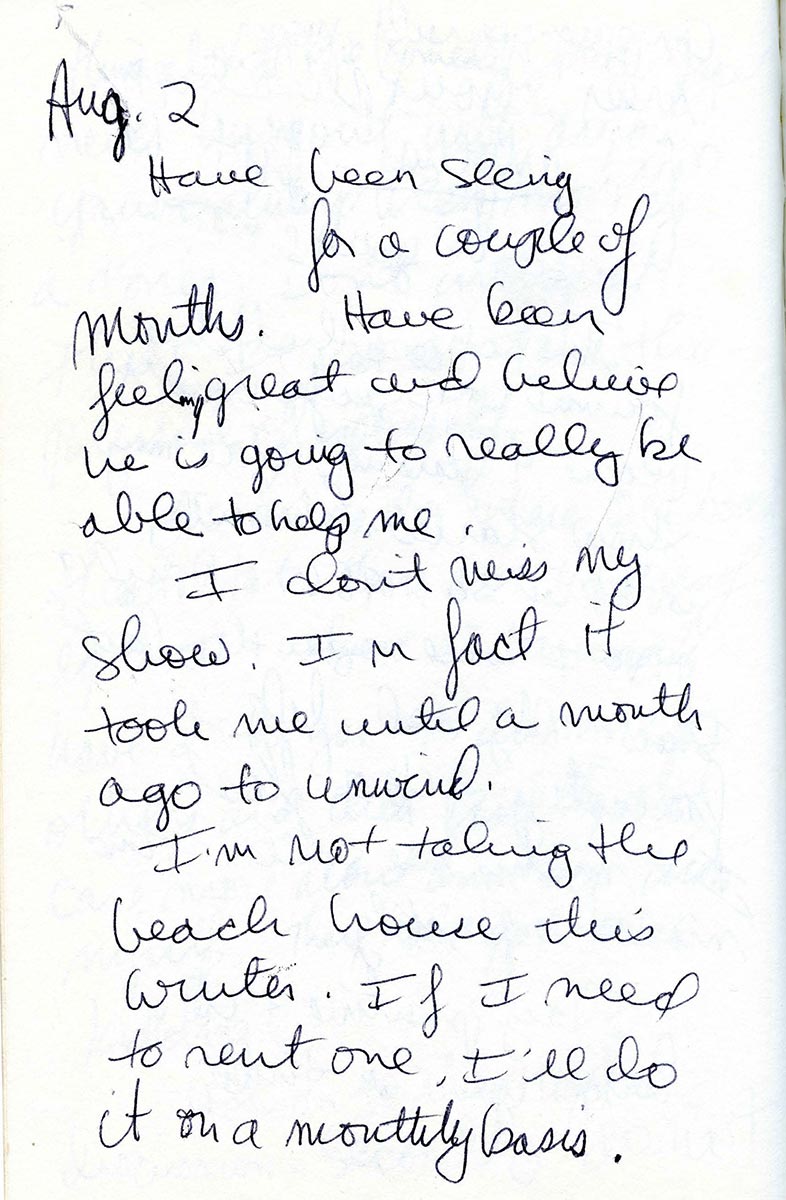 Aug. 2
Have been seeing
for a couple of
months. Have been
feeling great and believe
he is going to really be
able to help me.
I don't miss my
show. In fact it
took me until a month
ago to unwind.
I'm not taking the
beach house this
winter. If I need
to rent one, I'll do
it on a monthly basis.